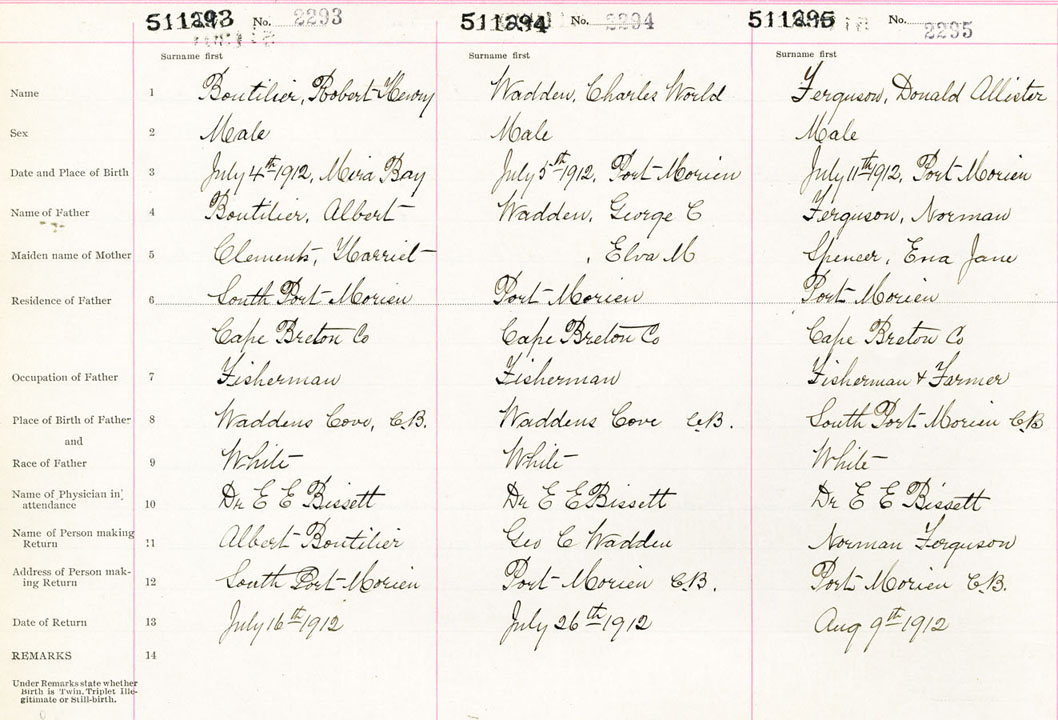 511293 No. 2293 511294 No. 2294 511295 No. 2295
Surname first Surname first Surname first
Name 1 Boutilier, Robert Henry Wadden, Charles World Ferguson, Donald Allister
Sex 2 Male Male Male
Date and Place of Birth 3 July 4th 1912, Mira Bay July 5th 1912, Port Morien July 11th 1912, Port Morien
Name of Father 4 Boutilier, Albert Wadden, George C Ferguson, Norman
Maiden name of Mother 5 Clements, Harriet , Elva M Spencer, Ena Jane
Residence of Father 6 South Port Morien Port Morien Port Morien
Cape Breton Co Cape Breton Co Cape Breton Co
Occupation of Father 7 Fisherman Fisherman Fisherman & Farmer
Place of Birth of Father 8 Waddens Cove, C.B. Waddens Cove C.B. South Port Morien C.B
and
Race of Father 9 White White White
Name of Physician in
attendance 10 Dr E E Bissett Dr E E Bissett Dr E E Bissett
Name of Person making
Return 11 Albert Boutilier Geo C Wadden Norman Ferguson
Address of Person mak-
ing Return 12 South Port Morien Port Morien C.B. Port Morien C.B.
Date of Return 13 July 16th 1912 July 26th 1912 Aug 9th 1912
REMARKS 14
Under Remarks state whether
Birth is Twin, Triplet Ille-
gitimate or Still-birth.